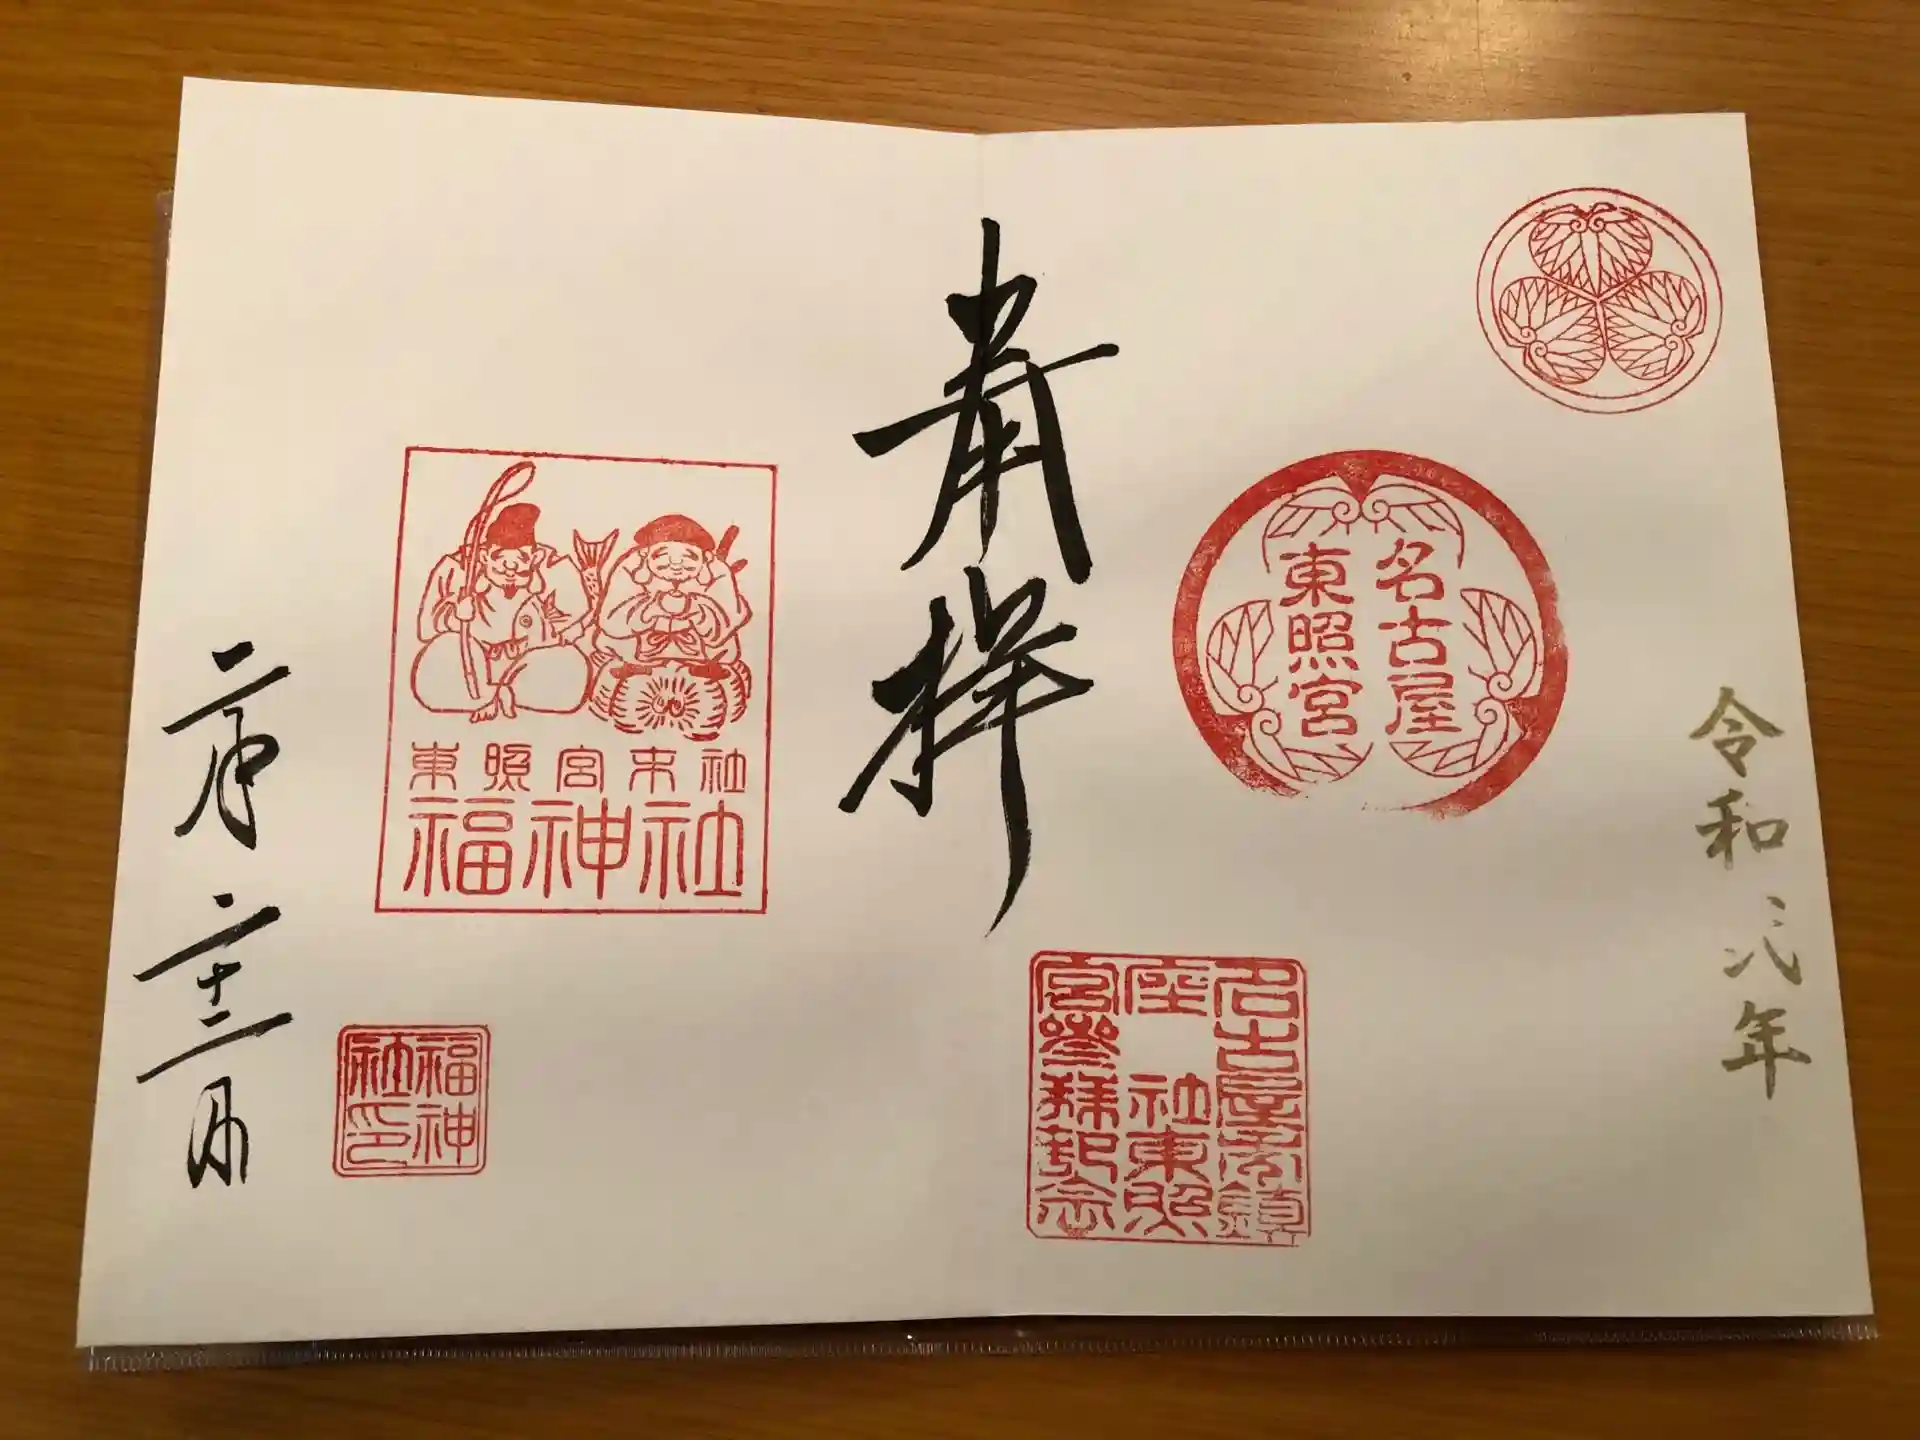 令和六年
名古屋
東照宮
名古屋市鎮
座 社東照
宮参拝記念
奉拝
東照宮末社
福神社
福神
社印
二月二十二日